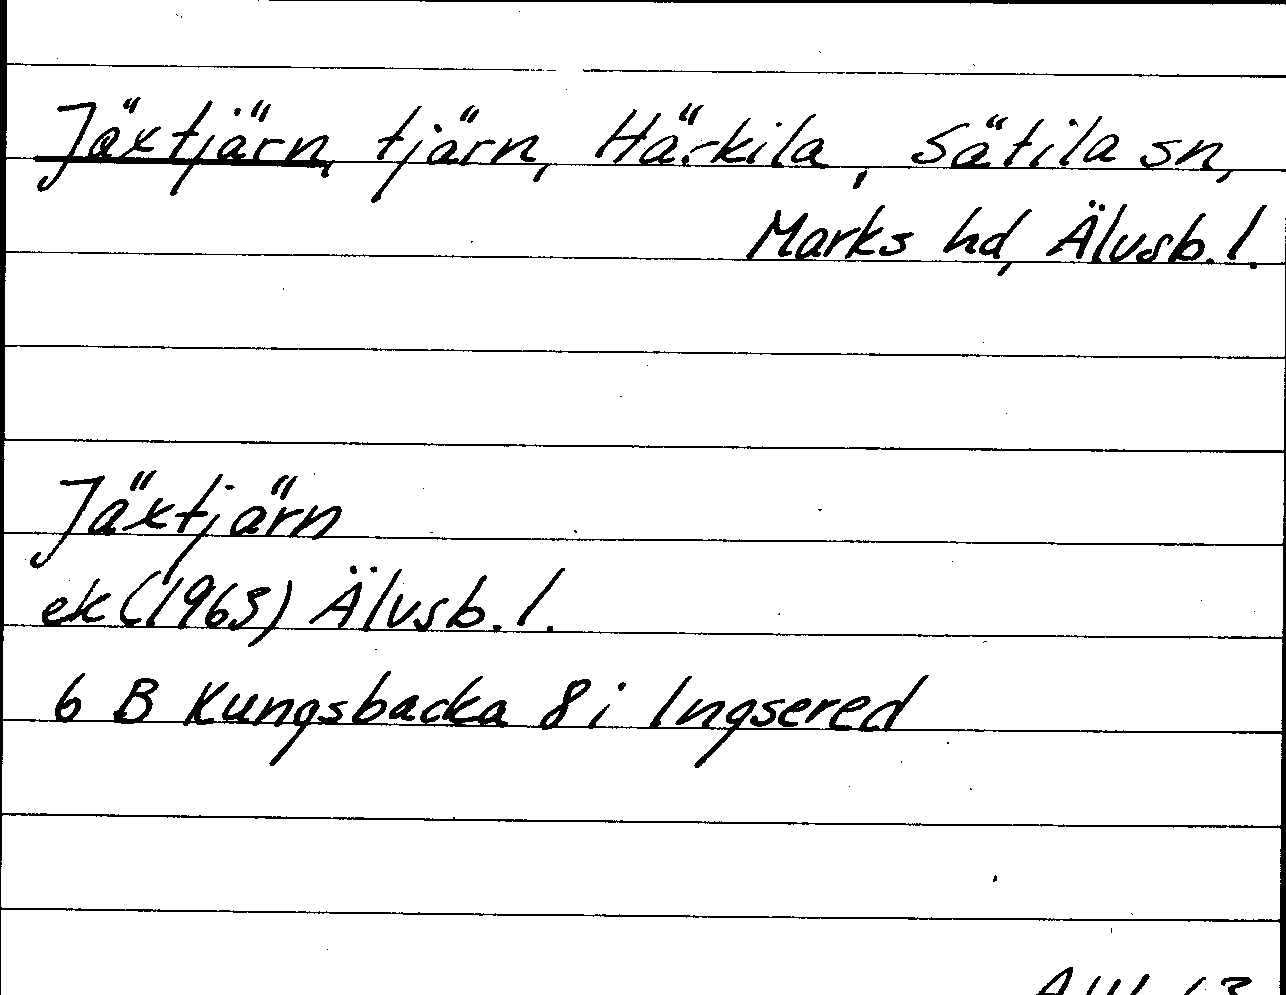 Jäxtjärn, tjärn, Härkila, Sätila sn,
Marks hd, Älvsb. l.
Jäxtjärn
ek (1963) Älvsb. l.
6 B Kungsbacka 8 i Ingsered